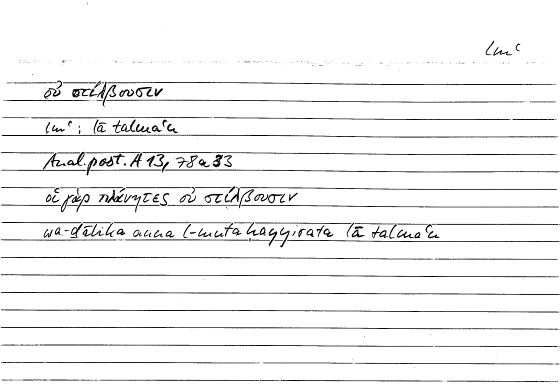 lmʿ
οὐ στίλβουσιν
lmʿ: lā talmaʿu
Anal. post. A 13, 78 a 33
οἱ γὰρ πλάνητες οὐ στίλβουσιν
wa-ḏālika anna l-mutaḥayyirata lā talmaʿu